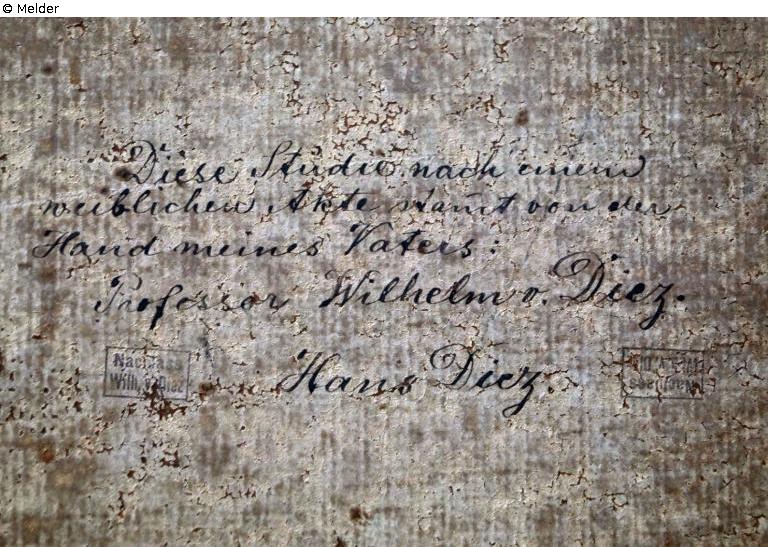 © Melder
Diese Studie nach einem
weiblichen Akte stam̄t von der
Hand meines Vaters:
Professor Wilhelm v. Diez.
Hans Diez.
Nachlass
Wilh. v. Diez
Nachlass
Wilh. v. Diez